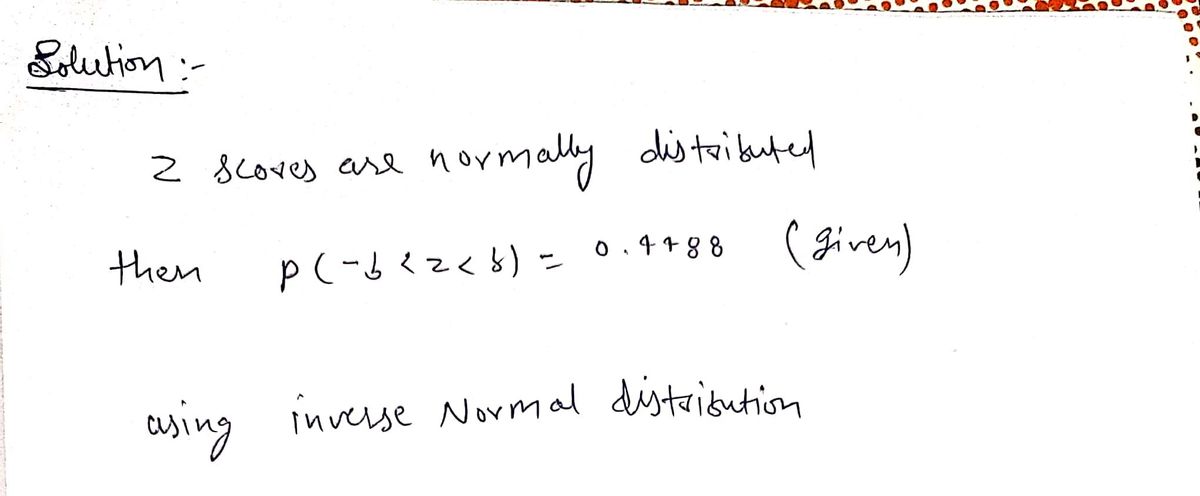 Solution :-
z scores are normally distributed
then P(-b < z < b) = 0.4488 (given)
using inverse Normal distribution